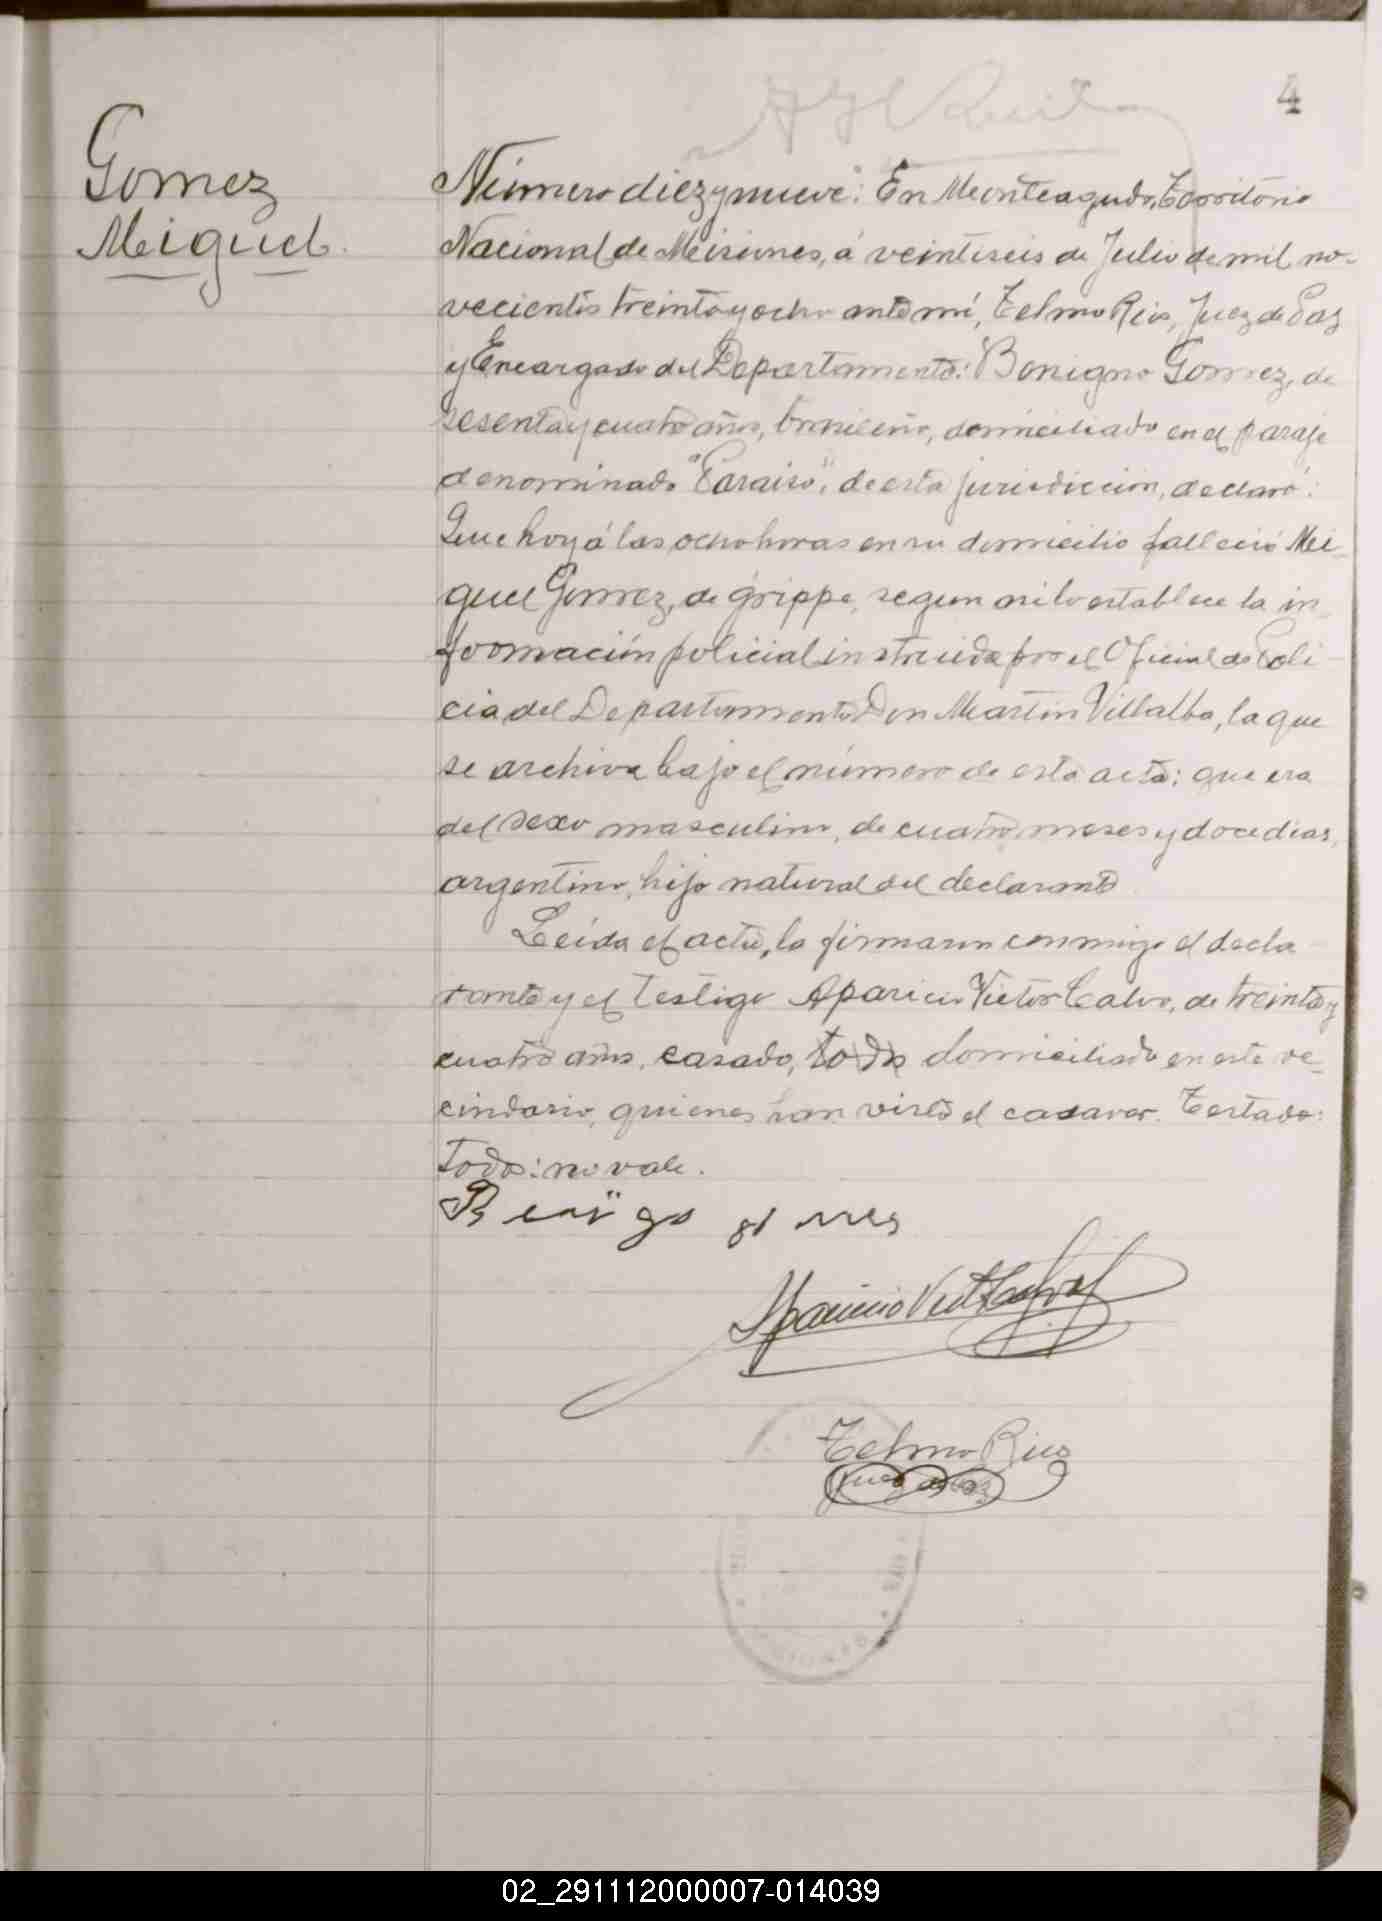 4
Gomez
Miguel.
Número diez y nueve: En Monteagudo, Territorio
Nacional de Misiones, á veintiseis de Julio de mil no-
vecientos treinta y ocho ante mí, Telmo Rios, Juez de Paz
y Encargado del Departamento: Benigno Gomez, de
sesenta y cuatro años, brasileño, domiciliado en el paraje
denominado "Paraiso", de esta jurisdiccion, declaró:
Que hoy á las ocho horas en su domicilio falleció Mi-
guel Gomez, de grippe, segun asi lo establece la in-
formación policial instruida por el Oficial de Poli-
cia del Departamento Don Martin Villalba, la que
se archiva bajo el número de esta acta; que era
del sexo masculino, de cuatro meses y doce dias,
argentino, hijo natural del declarante
Leída el acta, la firmaron conmigo el decla-
rante y el testigo Aparicio Victor Calvo, de treinta y
cuatro años, casado, todos domiciliado en este ve-
cindario, quienes han visto el cadaver. Testado:
todos: no vale.
Telmo Rios
Juez de Paz
02_291112000007-014039